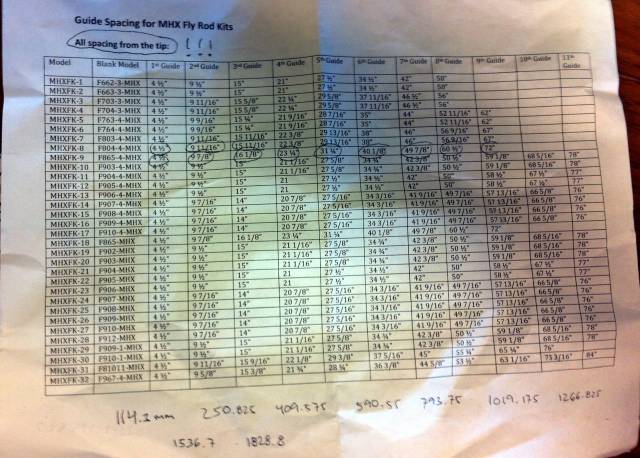 Guide Spacing for MHX Fly Rod Kits
All spacing from the tip: ! ! !
Model Blank Model 1st Guide 2nd Guide 3rd Guide 4th Guide 5th Guide 6th Guide 7th Guide 8th Guide 9th Guide 10th Guide 11th Guide
MHXFK-1 F662-3-MHX 4 ½" 9 ½" 15" 21" 27 ½" 34 ½" 42" 50"
MHXFK-2 F663-3-MHX 4 ½" 9 ½" 15" 21" 27 ½" 34 ½" 42" 50"
MHXFK-3 F703-3-MHX 4 ½" 9 11/16" 15 5/8" 22 ¼" 29 5/8" 37 11/16" 46 ½" 56"
MHXFK-4 F704-3-MHX 4 ½" 9 11/16" 15 5/8" 22 ¼" 29 5/8" 37 11/16" 46 ½" 56"
MHXFK-5 F763-4-MHX 4 ½" 9 9/16" 15 ¼" 21 9/16" 28 7/16" 35" 44" 52 11/16" 62"
MHXFK-6 F764-4-MHX 4 ½" 9 9/16" 15 ¼" 21 9/16" 28 7/16" 35" 44" 52 11/16" 62"
MHXFK-7 F803-4-MHX 4 ½" 9 11/16" 15 11/16" 22 3/8" 29 13/16" 38" 46" 56 9/16" 67"
MHXFK-8 F804-4-MHX 4 ½" 9 11/16" 15 11/16" 22 3/8" 29 13/16" 38" 46" 56 9/16" 67"
MHXFK-9 F865-4-MHX 4 ½" 9 7/8" 16 1/8" 23 ¼" 31 ¼" 40 1/8" 49 7/8" 60 ½" 72"
MHXFK-10 F903-4-MHX 4 ½" 9 ½" 15" 21 1/16" 27 5/8" 34 ¾" 42 3/8" 50 ½" 59 1/8" 68 5/16" 78"
MHXFK-11 F904-4-MHX 4 ½" 9 ½" 15" 21 27 ½" 34 ½" 42" 50" 58 ½" 67 ½" 77"
MHXFK-12 F905-4-MHX 4 ½" 9 ½" 15" 21 27 ½" 34 ½" 42" 50" 58 ½" 67 ½" 77"
MHXFK-13 F906-4-MHX 4 ½" 9 7/16" 14" 20 7/8" 27 5/16" 34 3/16" 41 9/16" 49 7/16" 57 13/16" 66 5/8" 76"
MHXFK-14 F907-4-MHX 4 ½" 9 7/16" 14" 20 7/8" 27 5/16" 34 3/16" 41 9/16" 49 7/16" 57 13/16" 66 5/8" 76"
MHXFK-15 F908-4-MHX 4 ½" 9 7/16" 14" 20 7/8" 27 5/16" 34 3/16" 41 9/16" 49 7/16" 57 13/16" 66 5/8" 76"
MHXFK-16 F909-4-MHX 4 ½" 9 7/16" 14" 20 7/8" 27 5/16" 34 3/16" 41 9/16" 49 7/16" 57 13/16" 66 5/8" 76"
MHXFK-17 F910-4-MHX 4 ½" 9 7/16" 14" 20 7/8" 27 5/16" 34 3/16" 41 9/16" 49 7/16" 57 13/16" 66 5/8" 76"
MHXFK-18 F865-MHX 4 ½" 9 7/8" 16 1/8" 23 ¼" 31 ¼" 40 1/8" 49 7/8" 60 ½" 72"
MHXFK-19 F902-MHX 4 ½" 9 ½" 15" 21 1/16" 27 5/8" 34 ¾" 42 3/8" 50 ½" 59 1/8" 68 5/16" 78"
MHXFK-20 F903-MHX 4 ½" 9 ½" 15" 21 1/16" 27 5/8" 34 ¾" 42 3/8" 50 ½" 59 1/8" 68 5/16" 78"
MHXFK-21 F904-MHX 4 ½" 9 ½" 15" 21 27 ½" 34 ½" 42" 50" 58 ½" 67 ½" 77"
MHXFK-22 F905-MHX 4 ½" 9 ½" 15" 21 27 ½" 34 ½" 42" 50" 58 ½" 67 ½" 77"
MHXFK-23 F906-MHX 4 ½" 9 7/16" 14" 20 7/8" 27 5/16" 34 3/16" 41 9/16" 49 7/16" 57 13/16" 66 5/8" 76"
MHXFK-24 F907-MHX 4 ½" 9 7/16" 14" 20 7/8" 27 5/16" 34 3/16" 41 9/16" 49 7/16" 57 13/16" 66 5/8" 76"
MHXFK-25 F908-MHX 4 ½" 9 7/16" 14" 20 7/8" 27 5/16" 34 3/16" 41 9/16" 49 7/16" 57 13/16" 66 5/8" 76"
MHXFK-26 F909-MHX 4 ½" 9 7/16" 14" 20 7/8" 27 5/16" 34 3/16" 41 9/16" 49 7/16" 57 13/16" 66 5/8" 76"
MHXFK-27 F910-MHX 4 ½" 9 7/16" 14" 20 7/8" 27 5/16" 34 3/16" 41 9/16" 49 7/16" 57 13/16" 66 5/8" 76"
MHXFK-28 F912-MHX 4 ½" 9 ½" 15" 21 1/16" 27 5/8" 34 ¾" 42 3/8" 50 ½" 59 1/8" 68 5/16" 78"
MHXFK-29 F909-1-MHX 4 ½" 9 ½" 15" 21 1/16" 27 5/8" 34 ¾" 42 3/8" 50 ½" 59 1/8" 68 5/16" 78"
MHXFK-30 F910-1-MHX 4 ½" 9 ½" 15" 21 1/16" 27 5/8" 34 ¾" 42 3/8" 50 ½" 59 1/8" 68 5/16" 78"
MHXFK-31 F81011-MHX 4 ½" 9 11/16" 15 9/16" 22 1/8" 29 3/8" 37 ½" 45" 55 ¼" 65 ¼" 76"
MHXFK-32 F967-4-MHX 4 ½" 9 5/8" 15 3/8" 21 ¾" 28 ¾" 36 3/8" 44 5/8" 53 ½" 63 1/16" 73 3/16" 84"
250.825 409.575 590.55 793.75 1019.175 1266.825
1536.7 1828.8